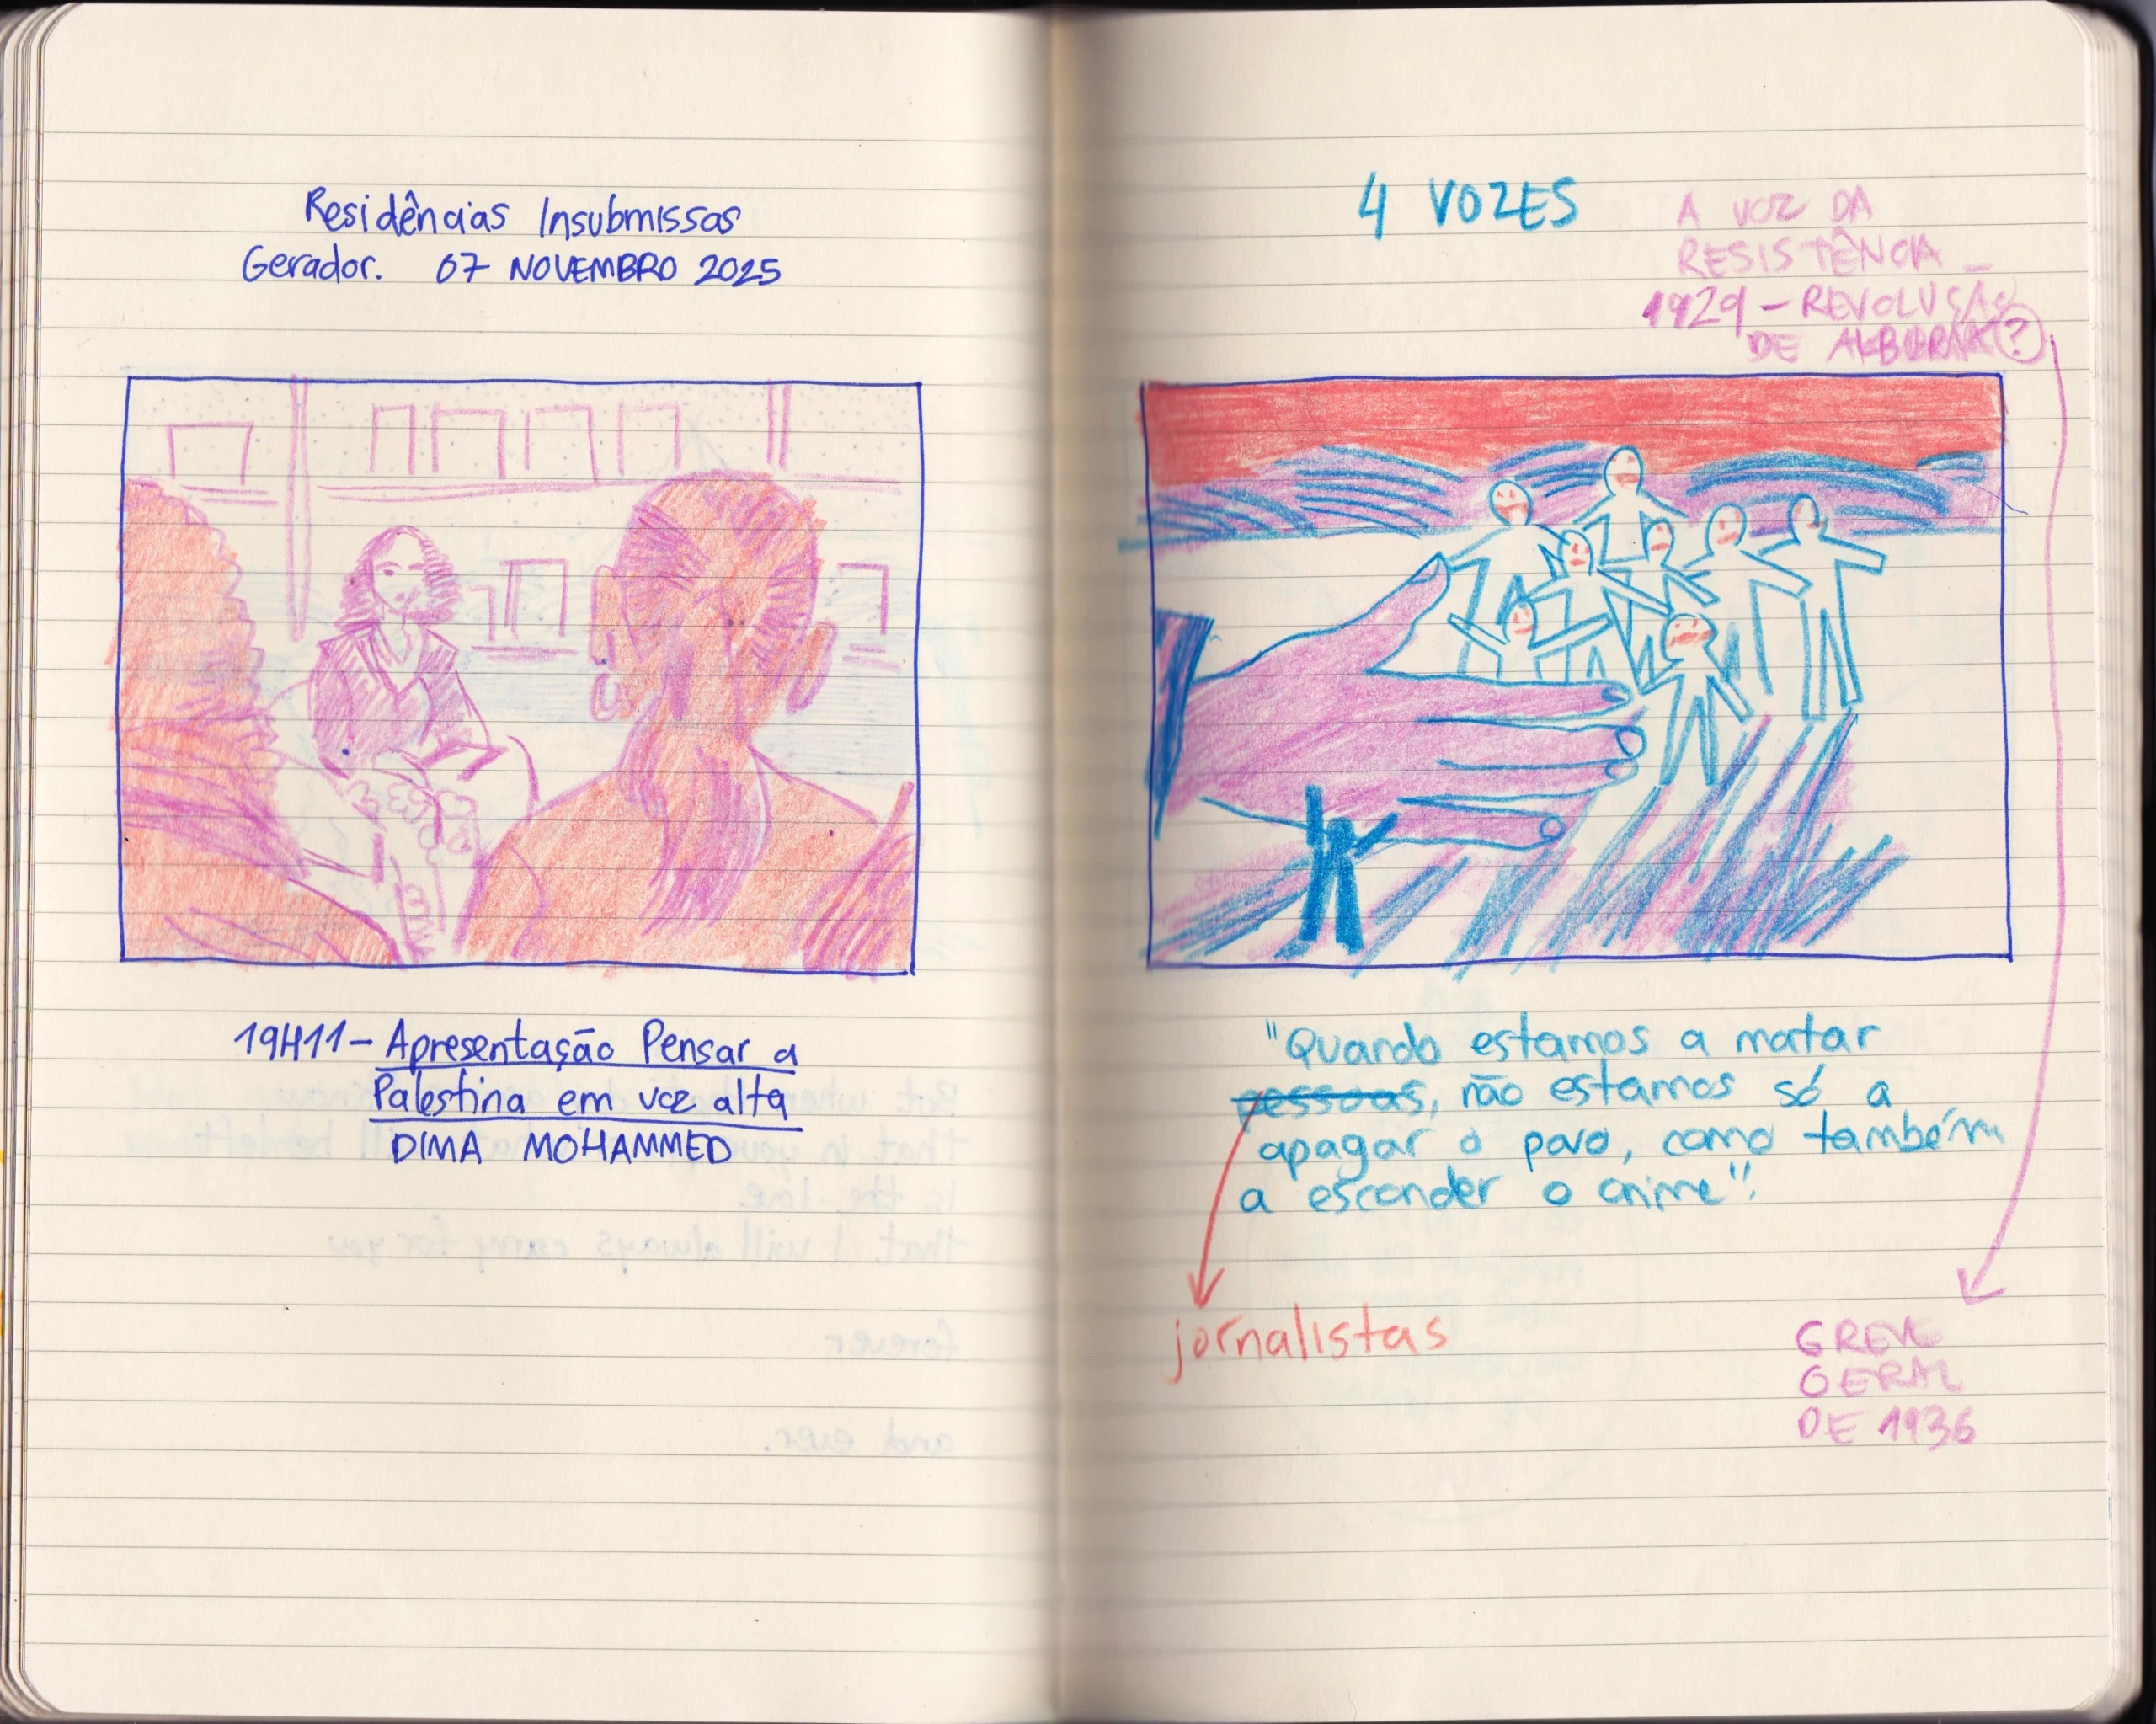 Residências Insubmissas
Gerador. 07 NOVEMBRO 2025
19H11 - Apresentação Pensar a
Palestina em voz alta
DIMA MOHAMMED
4 VOZES
A VOZ DA
RESISTÊNCIA _
1929 - REVOLUÇÃO
DE (?)
"Quando estamos a matar
pessoas, não estamos só a
apagar o povo, como também
a esconder o crime".
jornalistas
GREVE
GERAL
DE 1936